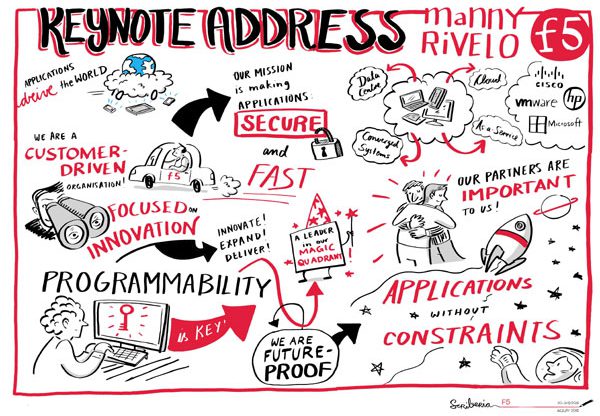 KEYNOTE ADDRESS
manny
RiVELO
f5
APPLICATIONS
drive the WORLD
OUR MISSION
is making
APPLICATIONS:
SECURE
and
FAST
Data
Centre
Cloud
Converged
Systems
As a Service
CISCO
vmware
hp
Microsoft
WE ARE A
CUSTOMER-
DRIVEN
ORGANISATION!
f5
FOCUSED ON
INNOVATION
INNOVATE!
EXPAND!
DELIVER!
A LEADER
in our
MAGIC
QUADRANT!
OUR PARTNERS ARE
IMPORTANT
TO US!
PROGRAMMABILITY
is KEY!
WE ARE
FUTURE-
PROOF
APPLICATIONS
WITHOUT
CONSTRAINTS
Scriberia
F5